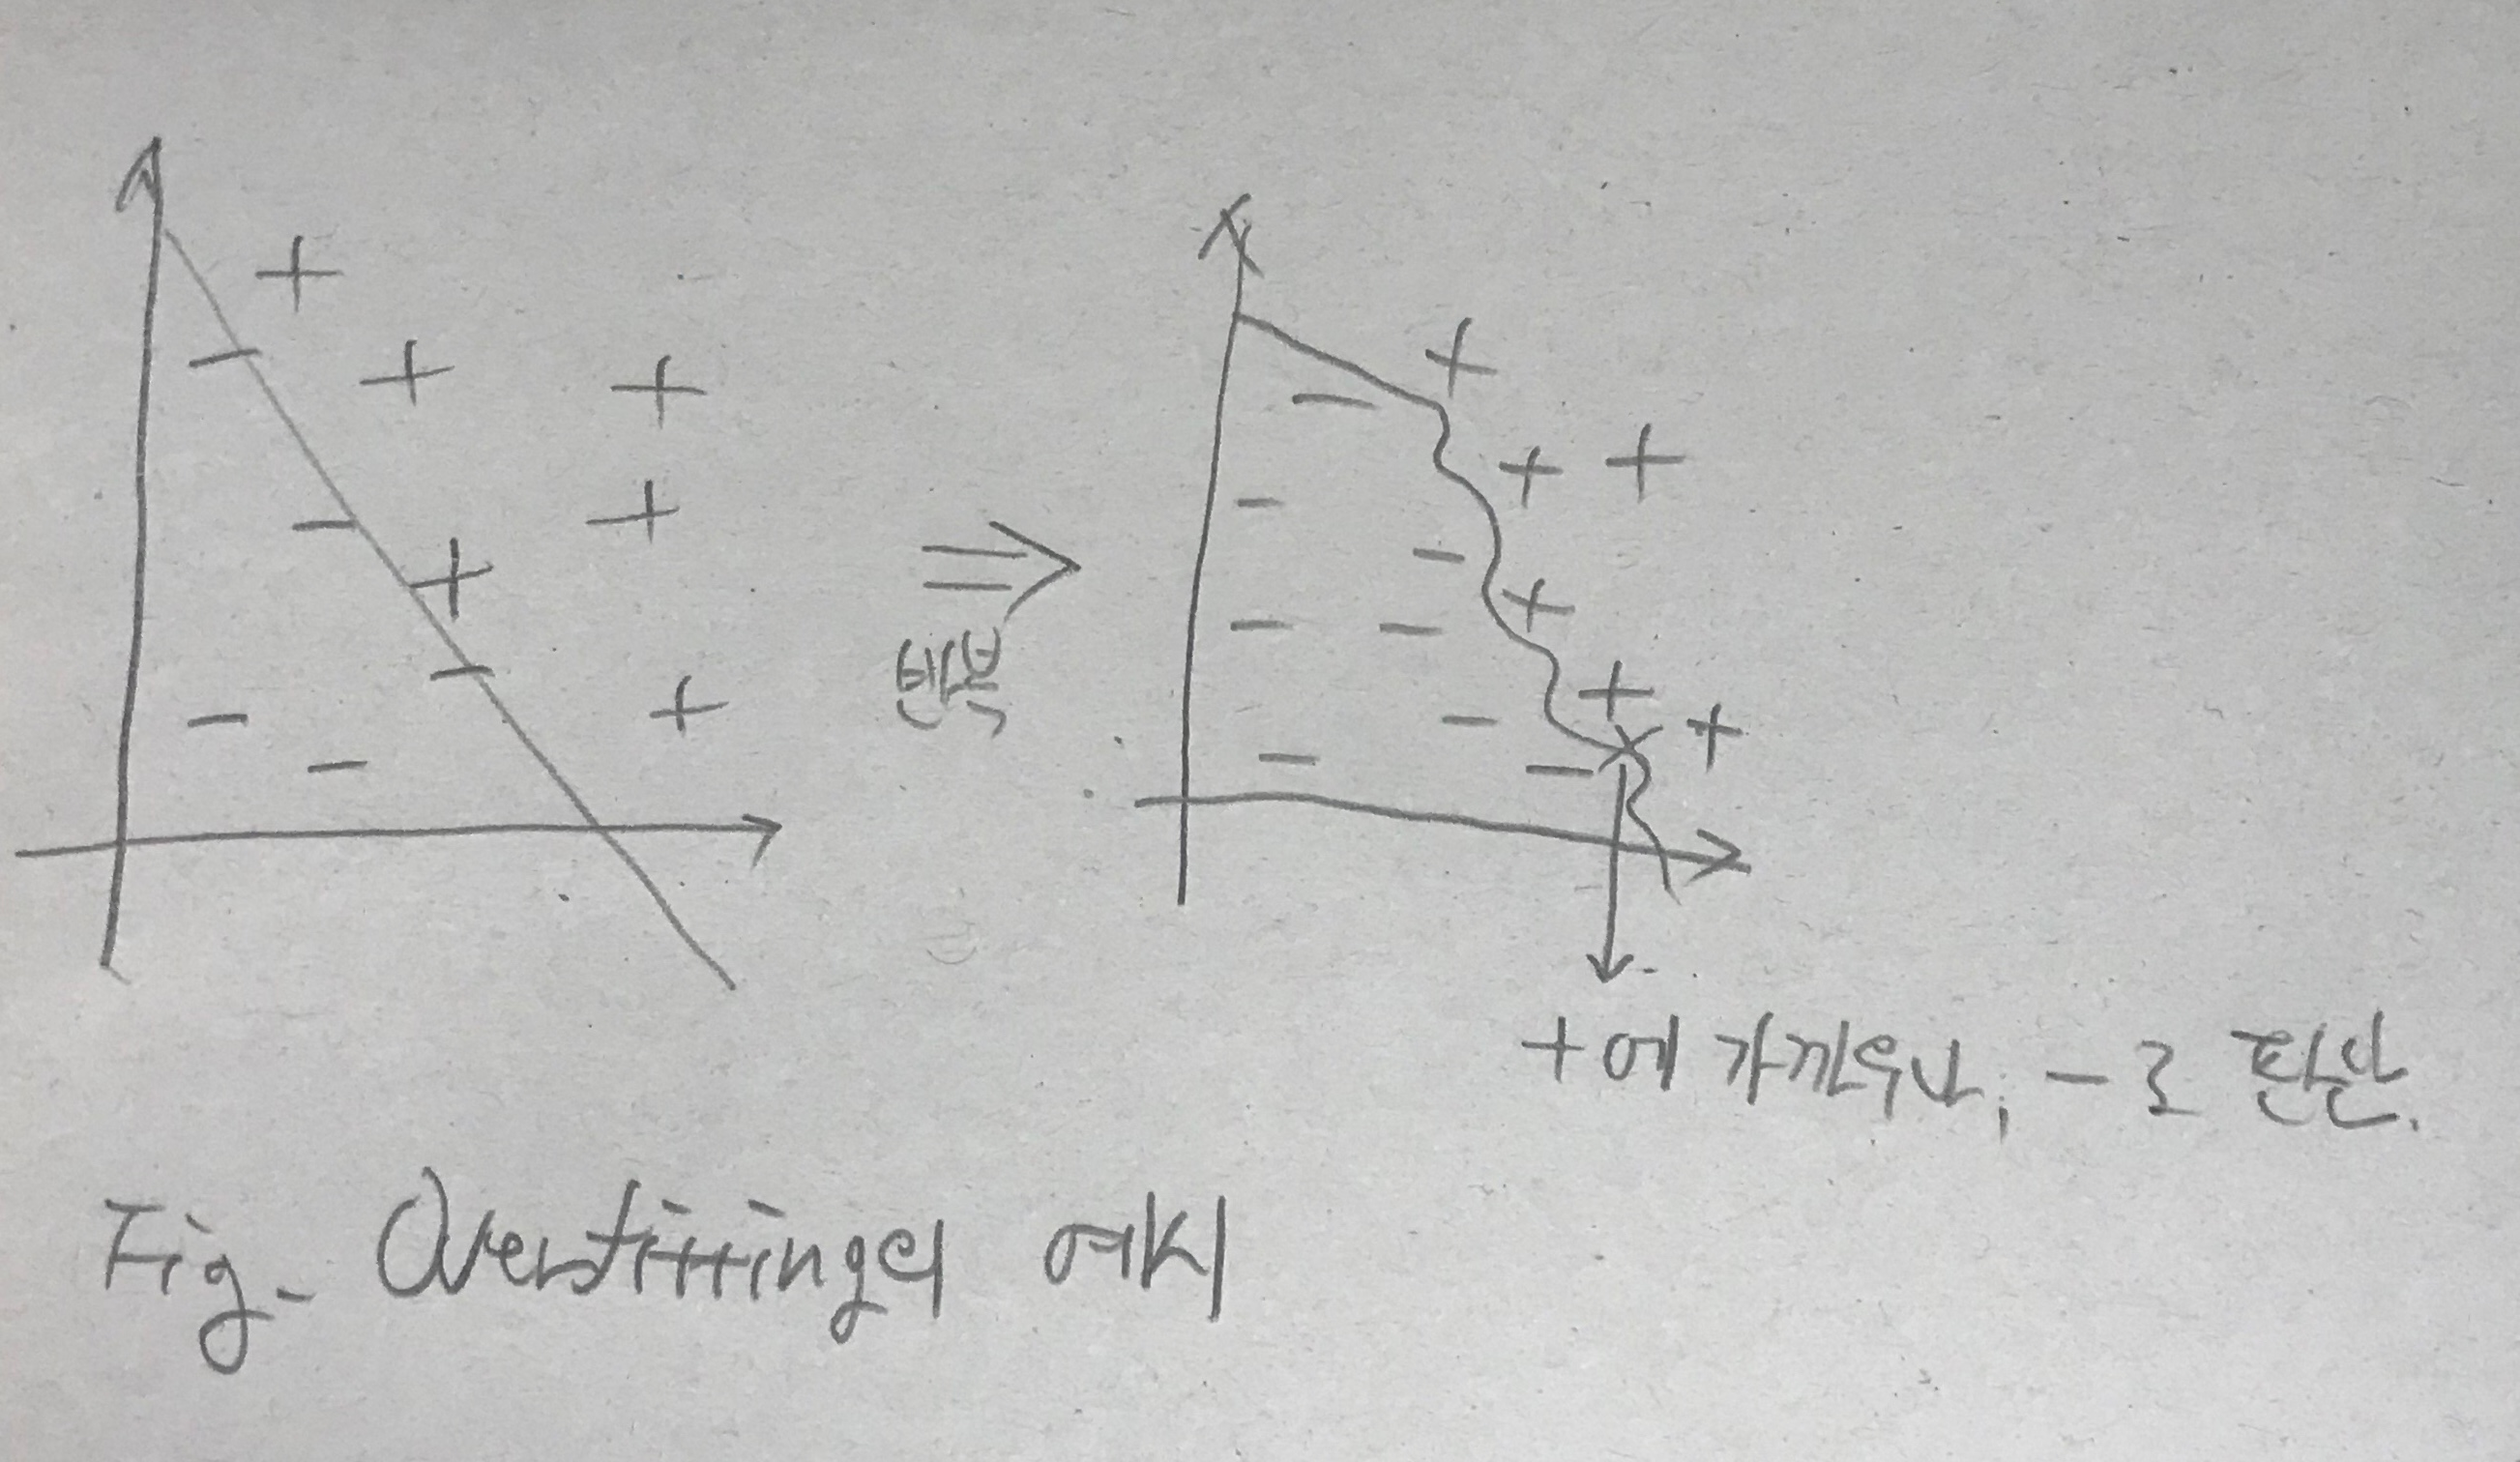 반복
+에 가까우나, -로 판단.
Fig. Overfitting의 예시